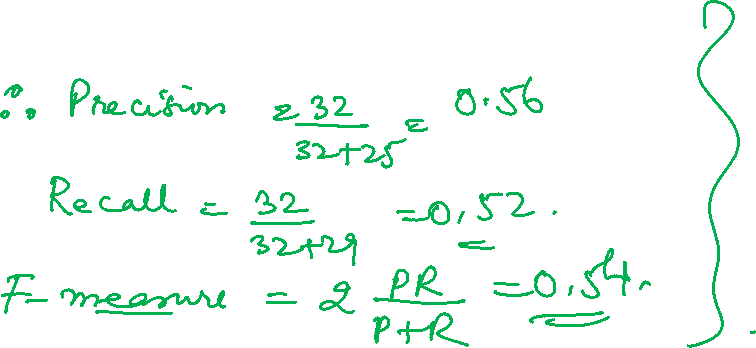 ∴ Precision = 32/(32+25) = 0.56
Recall = 32/(32+29) = 0.52.
F-measure = 2 PR/(P+R) = 0.54.